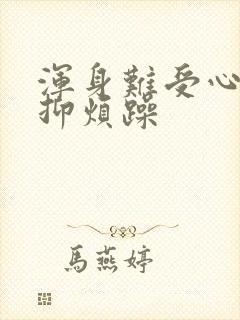 渾身難受心
抑煩躁
馬燕婷